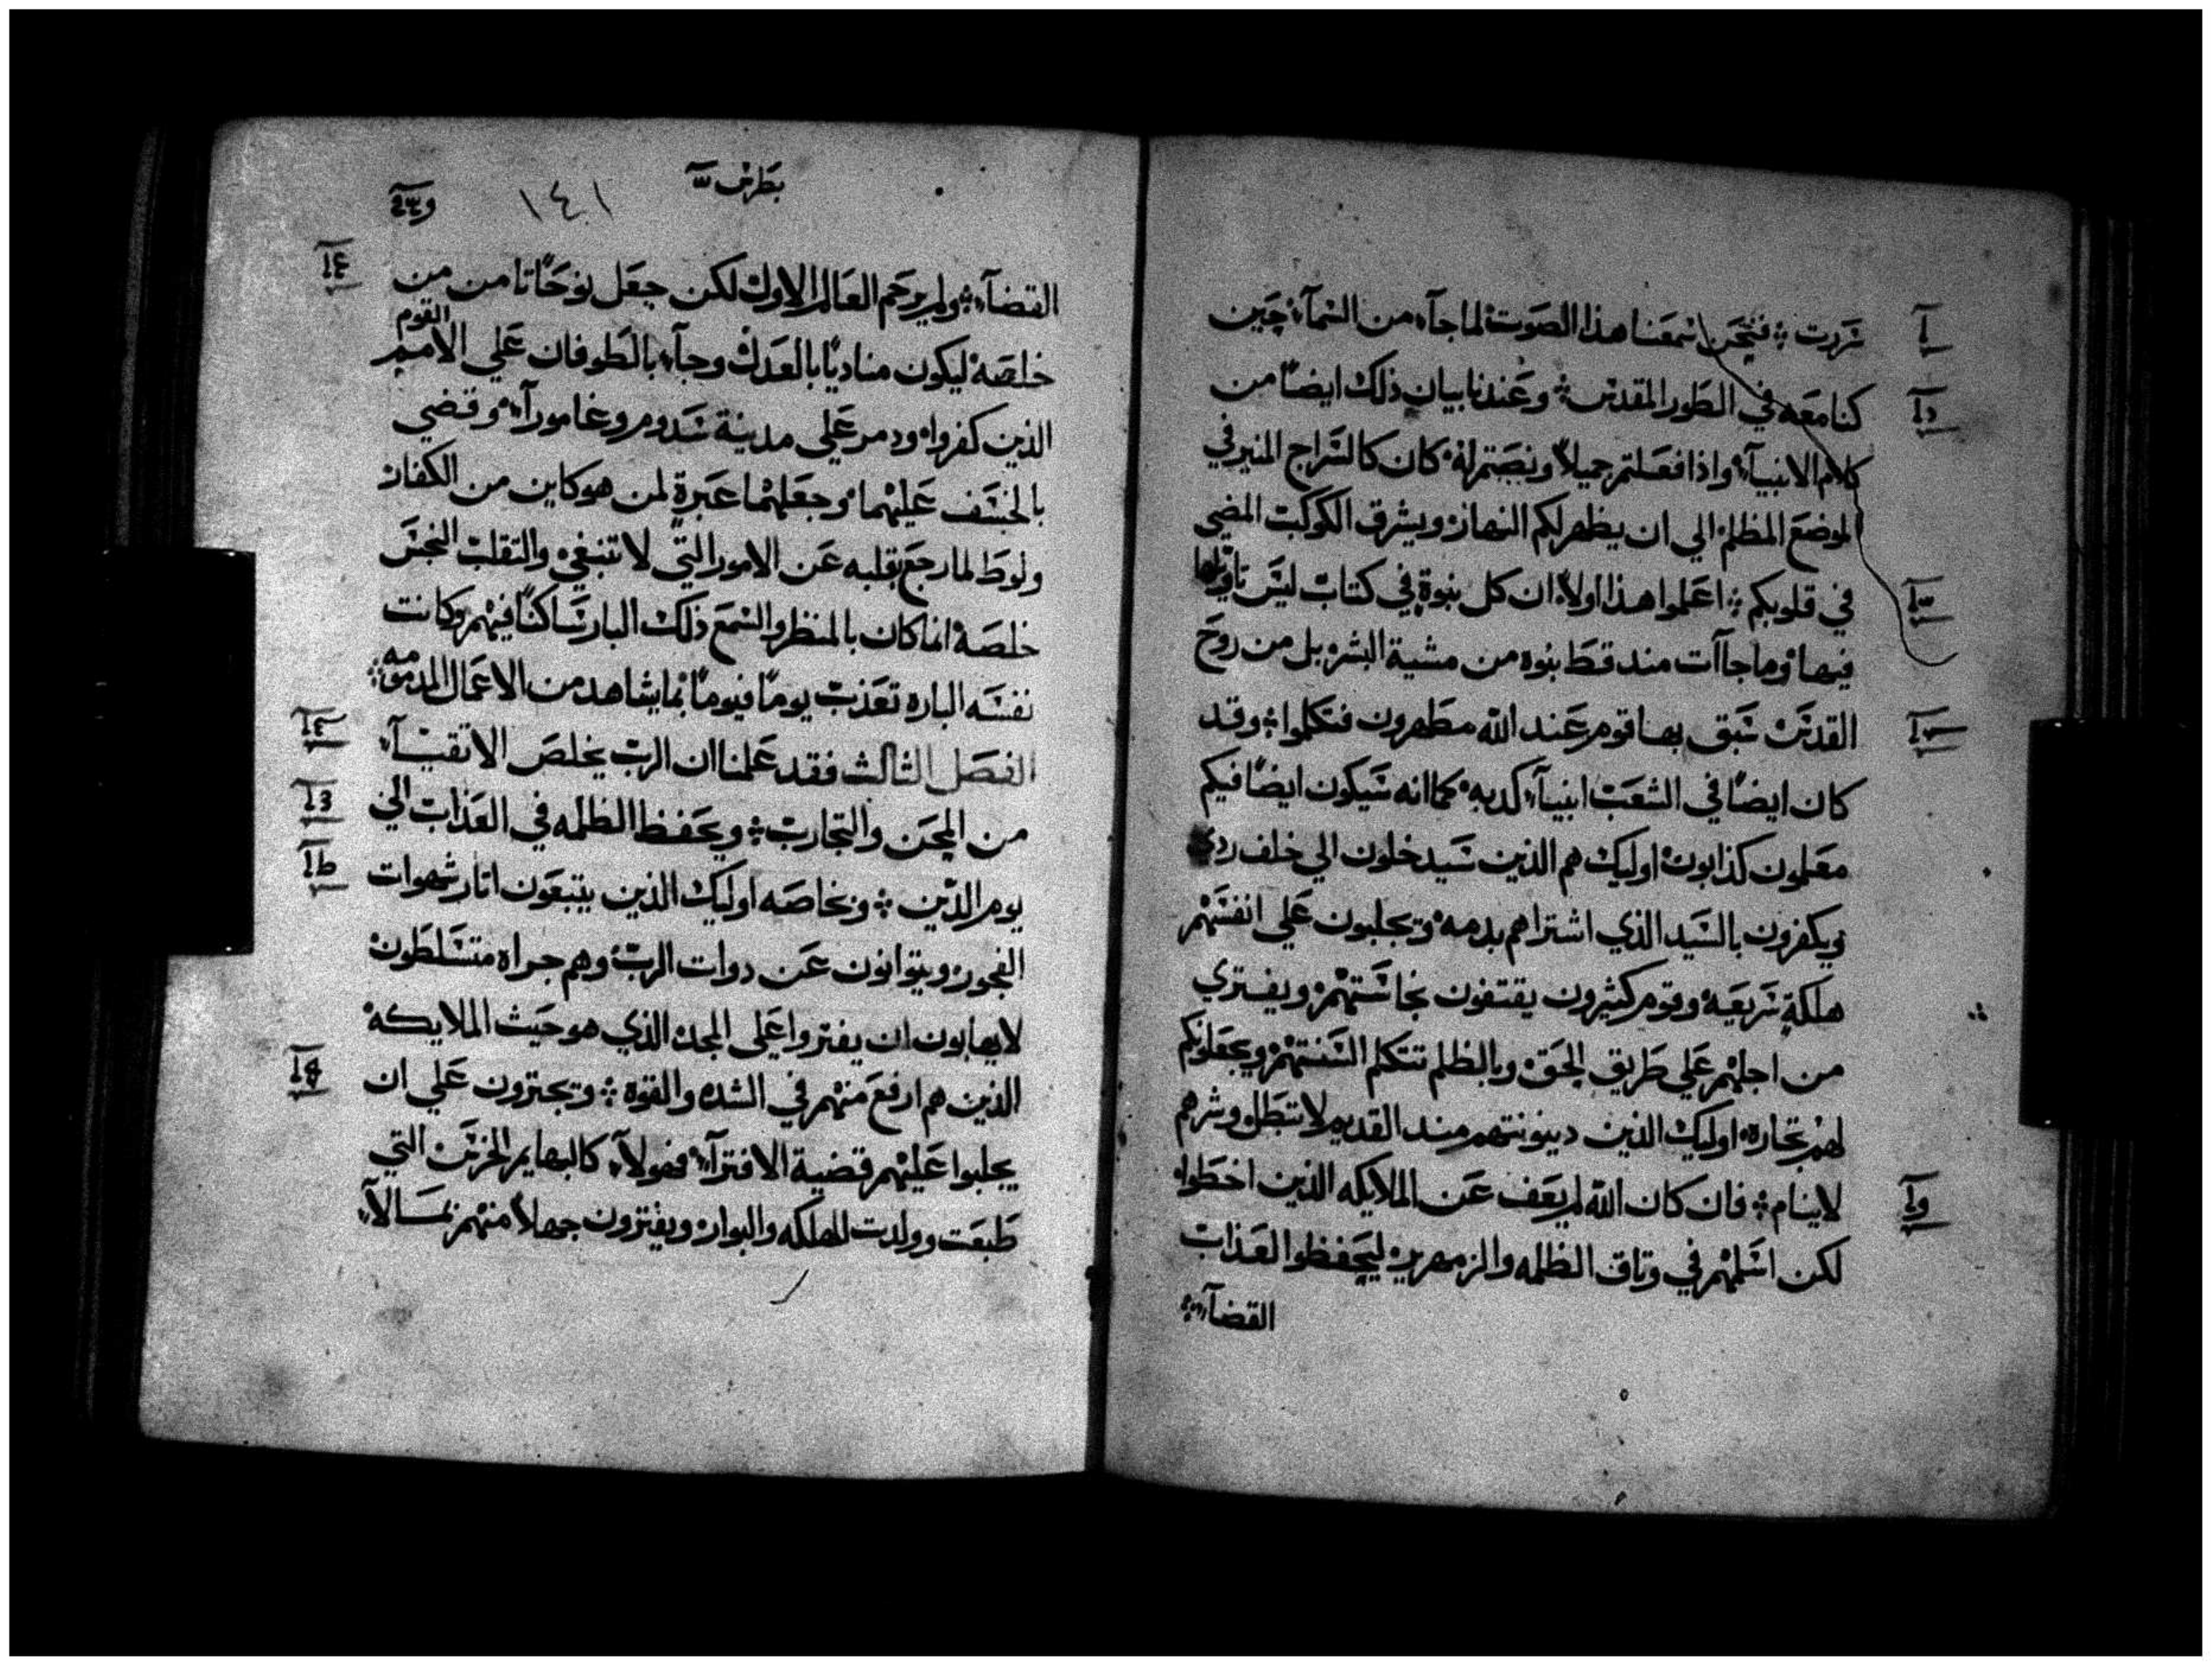 سررت ۞ فنحن اسمعنا هذا الصوت لما جاء من السمآء حين
كنا معه في الطور المقدس ۞ وعندنا بيان ذلك ايضًا من
كلام الانبيآء واذا فعلتم جميلاً ونصتم له كان كالسراج المنير في
الموضع المظلم الي ان يظهر لكم النهار ويشرق الكوكب المضي
في قلوبكم ۞ اعلموا هذا اولاً ان كل نبوة في كتاب ليس تاويلها
فيها وما جاآت مند قط بنوه من مشية البشر بل من روح
القدس سبق بها قوم عند الله مطهرون فتكلموا ۞ وقد
كان ايضًا في الشعب انبيآء كدبه كما انه سيكون ايضًا فيكم
معلمون كذابون اوليك هم الذين سيدخلون الي خلف ردي
ويكفرون بالسيد الذي اشتراهم بدمه ويجلبون علي انفسهم
هلكة سريعه وقوم كثيرون يقتفون نجاستهم ويفتري
من اجلهم علي طريق الحق وبالظلم تتكلم السنتهم ويجعلونكم
لهم تجاره اوليك الذين دينونتهم مند القديم لا تبطل وشرهم
لاينام ۞ فان كان الله لم يعف عن الملايكه الذين اخطوا
لكن اسلمهم في وتاق الظلمه والزمهرير ليحفظوا العذاب
القضآء
بطرس
١٤١
القضآء ۞ ولم يرحم العالم الاول لكن جعل نوحًا تامن من
القوم
خلصه ليكون مناديًا بالعدل وجآء بالطوفان علي الامم
الذين كفروا ودمر علي مدينة سدوم وغامورآء وقضي
بالخسف عليهما وجعلهما عبرة لمن هو كاين من الكفار
ولوط لما رجع بقلبه عن الامور التي لا تنبغي والتقلب النجس
خلصه انما كان بالمنظر والسمع ذلك البار ساكنًا فيهم وكانت
نفسه الباره تعذب يومًا فيومًا بما يشاهد من الاعمال المدمومه
الفصل الثالث فقد علمنا ان الرب يخلص الاتقيآء
من المحن والتجارب ۞ ويحفظ الظلمه في العذاب الي
يوم الدين ۞ وبخاصه اوليك الذين يتبعون اتار شهوات
الفجور ويتوانون عن دوات الرب وهم جراه متسلطون
لايهابون ان يفتروا علي المجد الذي هو حيث الملايكه
الذين هم ارفع منهم في الشده والقوه ۞ ويجترون علي ان
يجلبوا عليهم قضية الافترآء فهولآء كالبهايم الخرس التي
طبعت وولدت للهلكه والبوار ويفترون جهلاً منهم بمسالآء